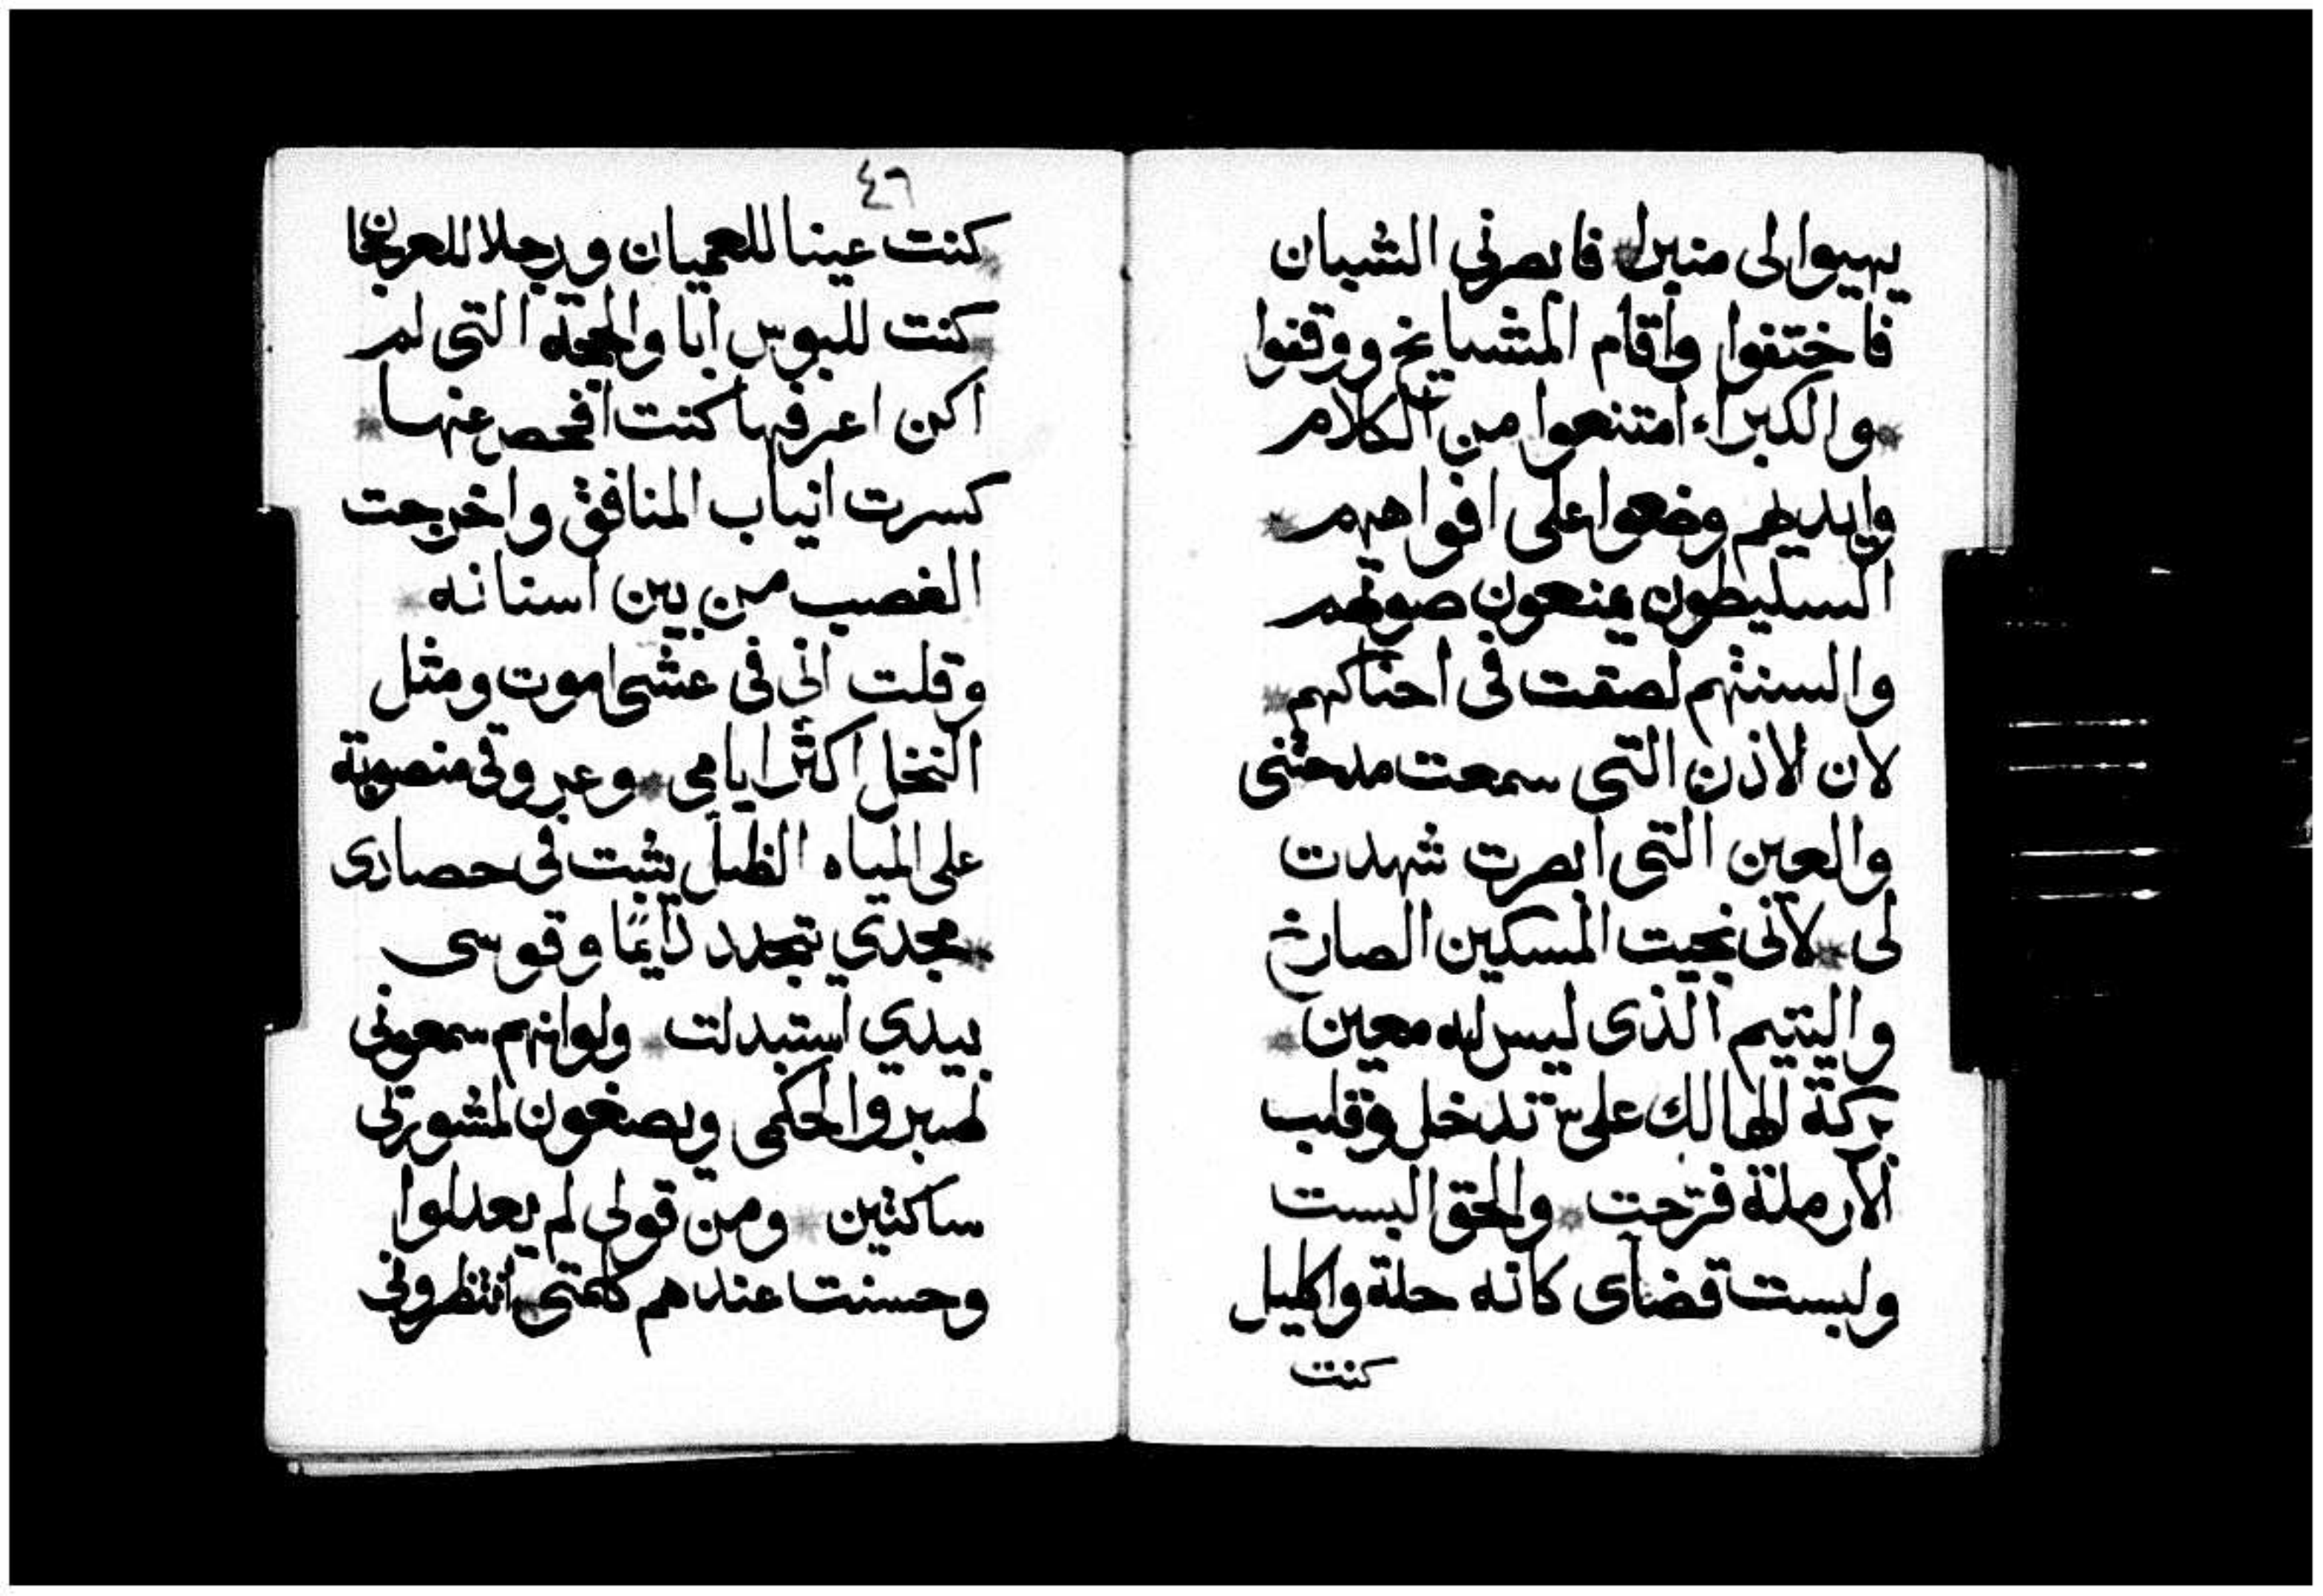 يهيوا لى منبرا فابصرني الشبان
فاختفوا واقام المشايخ ووقفوا
والكبراء امتنعوا من الكلام
وايديهم وضعوا على افواههم
السليطون يمنعون صوتهم
والسنتهم لصقت فى احناكهم
لان الاذن التى سمعت مدحتنى
والعين التى ابصرت شهدت
لى لانى نجيت المسكين الصارخ
واليتيم الذى ليس له معين
بركة الهالك علىّ تدخل وقلب
الارملة فرّحت والحق البست
ولبست قضاى كانه حلة واكليل
كنت
٤٦
كنت عينا للعميان ورجلا للعرجا
كنت للبوس ابا والحجة التى لم
اكن اعرفها كنت افحص عنها
كسرت انياب المنافق واخرجت
الغصب من بين اسنانه
وقلت انى فى عشى اموت ومثل
النخل اكثر ايامى وعروقى منصوبة
على المياه الظل يثبت فى حصادى
مجدي تتجدد دايمًا وقوسى
بيدي استبدلت ولوانهم سمعونى
لصبروا لحكمى ويصغون لمشورتى
ساكتين ومن قولى لم يعدلوا
وحسنت عندهم كلمتى انتظرونى